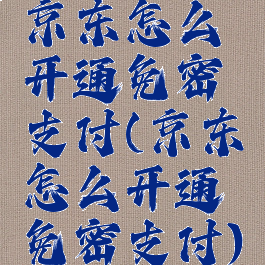 京东怎么
开通免密
支付(京东
怎么开通
免密支付)